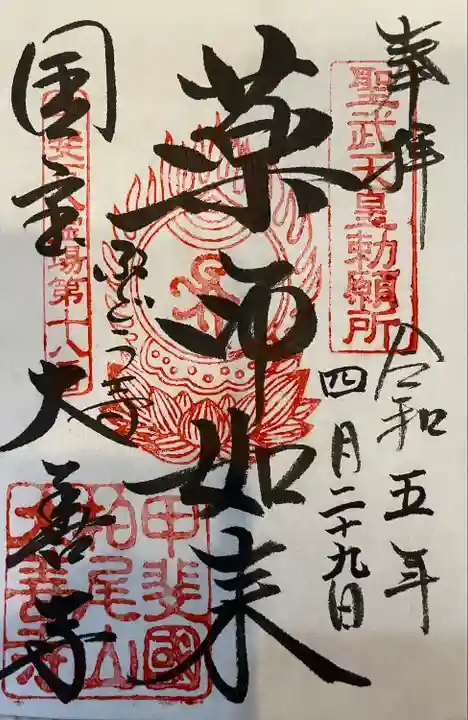 奉拝
聖武天皇勅願所
令和五年
四月二十九日
薬師如来
ぶどう寺
国宝 大善寺
霊場第十八
甲斐國
柏尾山
大善寺